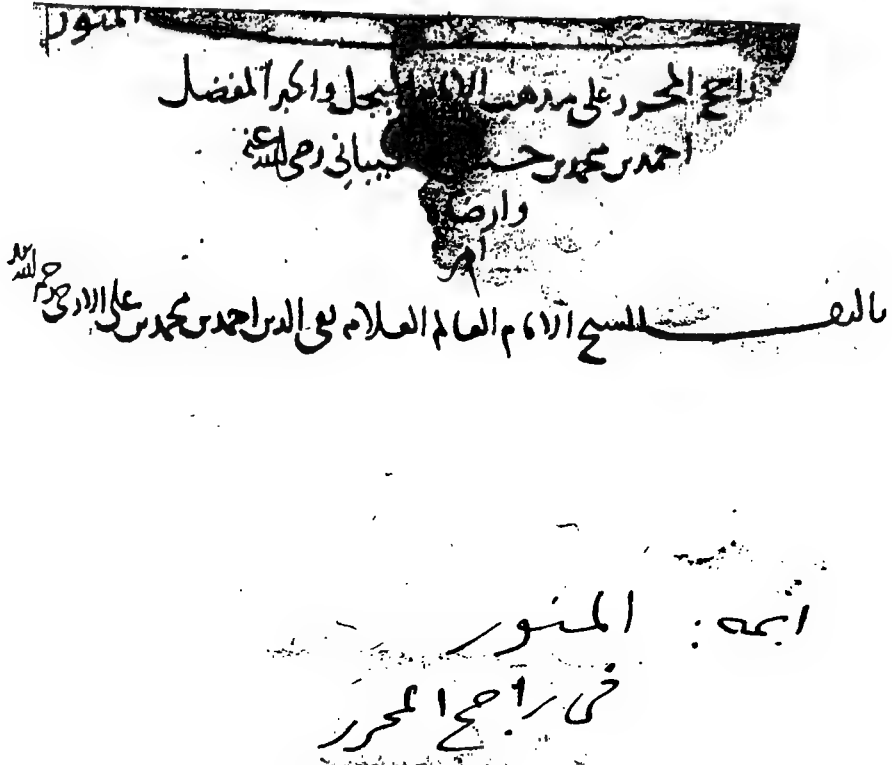 المنور
راجح المحرر على مذهب الامام المبجل والحبر المفضل
احمد بن محمد بن حنبل الشيباني رضي الله عنه
وارضاه
امين
تاليف الشيخ الامام العالم العلامه تقي الدين احمد بن محمد بن علي الادمي رحمه الله
اسمه : المنور
في راجح المحرر